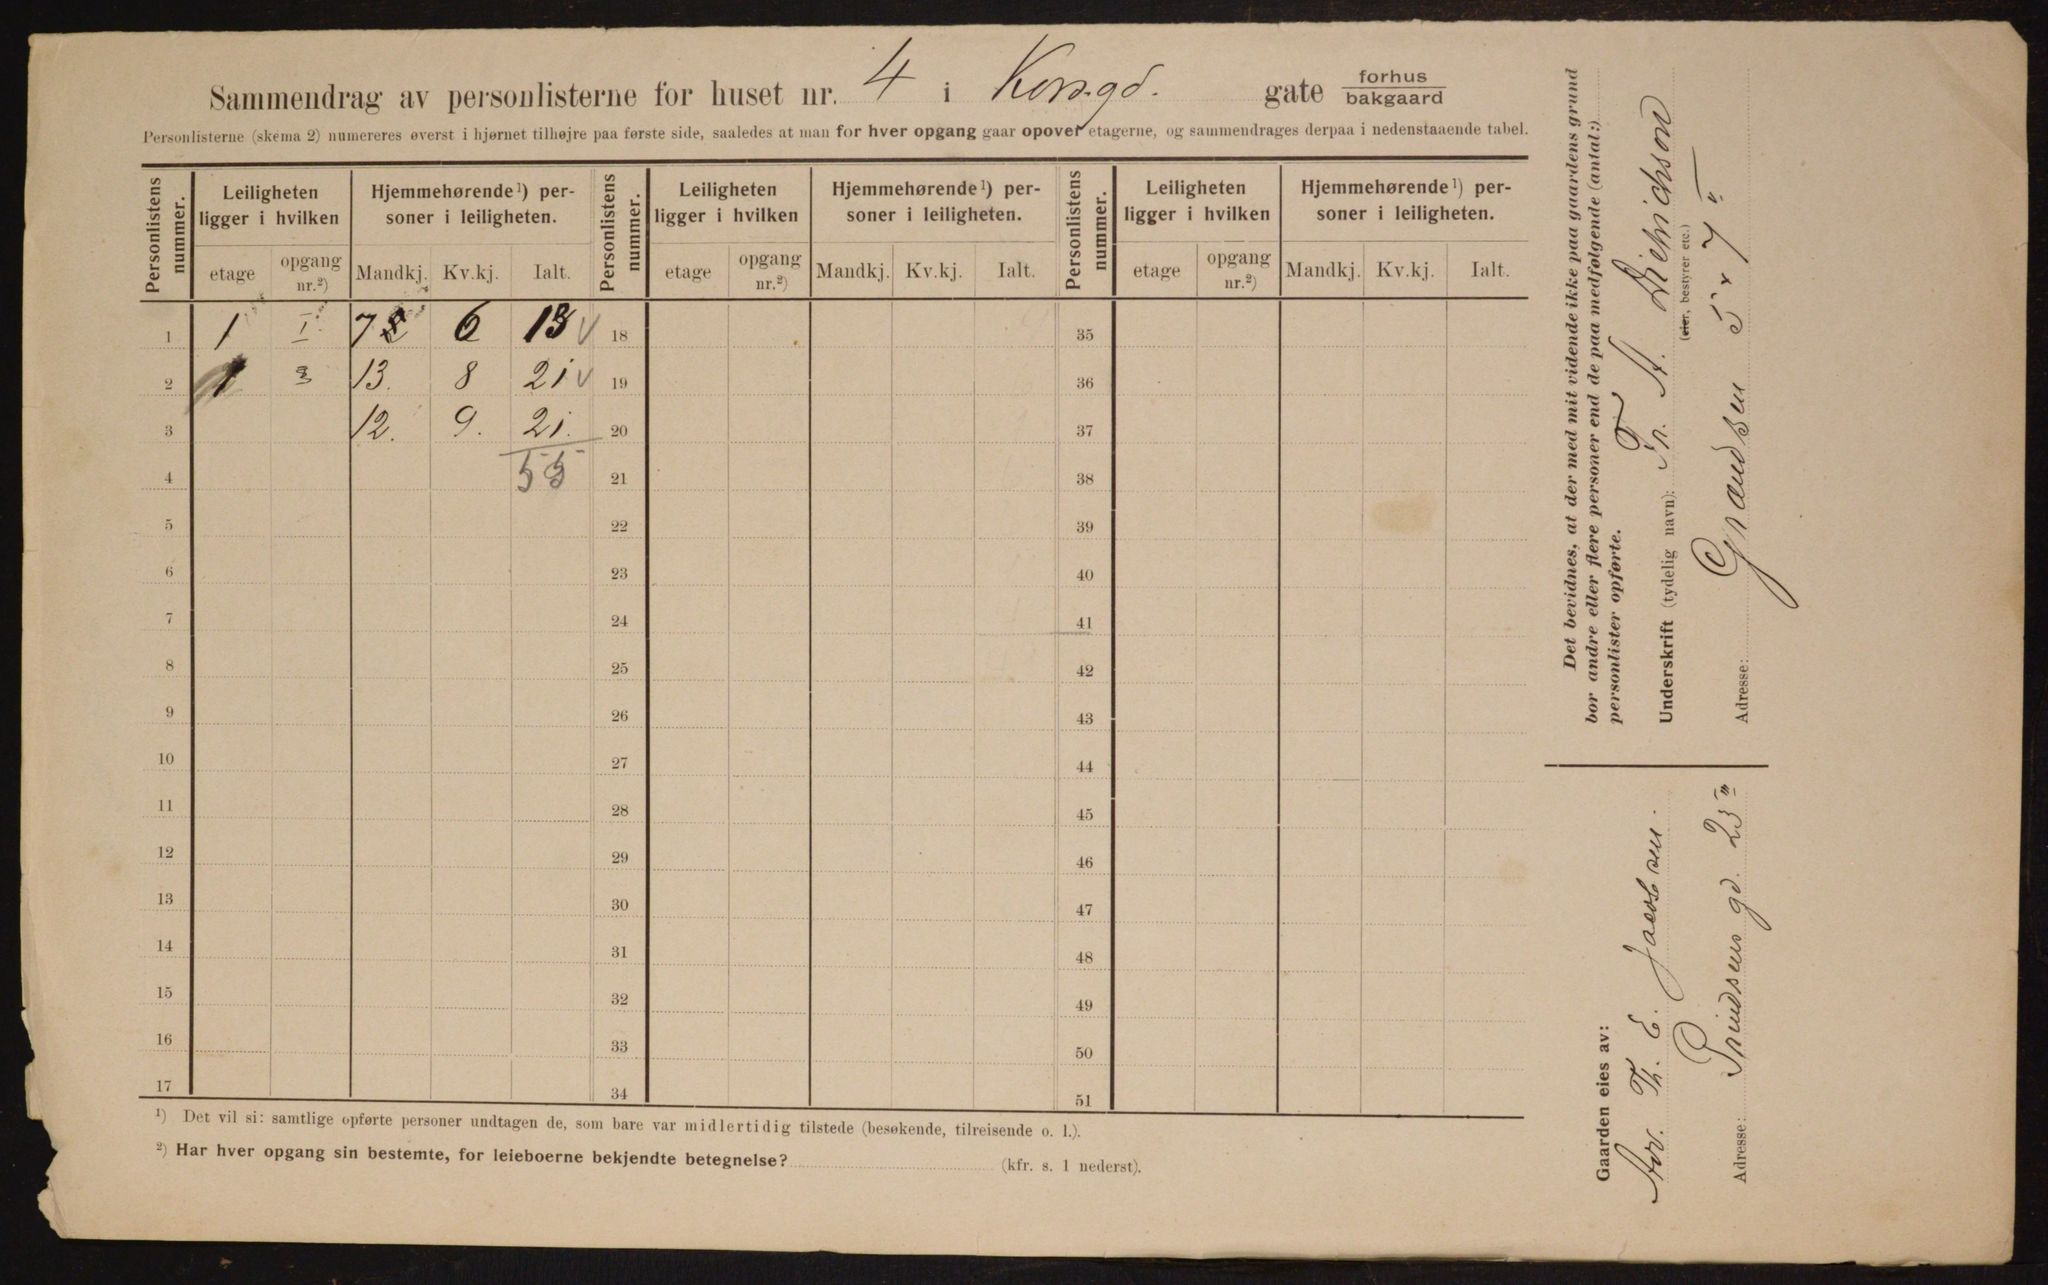 Sammendrag av personlisterne for huset nr. 4 i Korsgd. gate forhus bakgaard
Personlisterne (skema 2) numereres øverst i hjørnet tilhøjre paa første side, saaledes at man for hver opgang gaar opover etagerne, og sammendrages derpaa i nedenstaaende tabel.
Personlistens nummer. Leiligheten ligger i hvilken Hjemmehørende ¹) personer i leiligheten. Personlistens nummer. Leiligheten ligger i hvilken Hjemmehørende ¹) personer i leiligheten. Personlistens nummer. Leiligheten ligger i hvilken Hjemmehørende ¹) personer i leiligheten.
etage opgang nr.²) Mandkj. Kv.kj. Ialt. etage opgang nr.²) Mandkj. Kv.kj. Ialt. etage opgang nr.²) Mandkj. Kv.kj. Ialt.
1 1 I. 7 6 13 √ 18 35
2 1 13. 8 21 √ 19 36
3 12. 9. 21. 20 37
4 55 21 38
5 22 39
6 23 40
7 24 41
8 25 42
9 26 43
10 27 44
11 28 45
12 29 46
13 30 47
14 31 48
15 32 49
16 33 50
17 34 51
¹) Det vil si: samtlige opførte personer undtagen de, som bare var midlertidig tilstede (besøkende, tilreisende o. l.).
²) Har hver opgang sin bestemte, for leieboerne bekjendte betegnelse? (kfr. s. 1 nederst).
Det bevidnes, at der med mit vidende ikke paa gaardens grund
bor andre eller flere personer end de paa medfølgende (antal:)
personlister opførte.
Underskrift (tydelig navn): Fr. A. Dietrichson
(eier, bestyrer etc.)
Adresse: Grændsen 5 & 7 II
Gaarden eies av:
Adv. Th. E. Jacobsen.
Adresse: Prindsens gd. 23 III